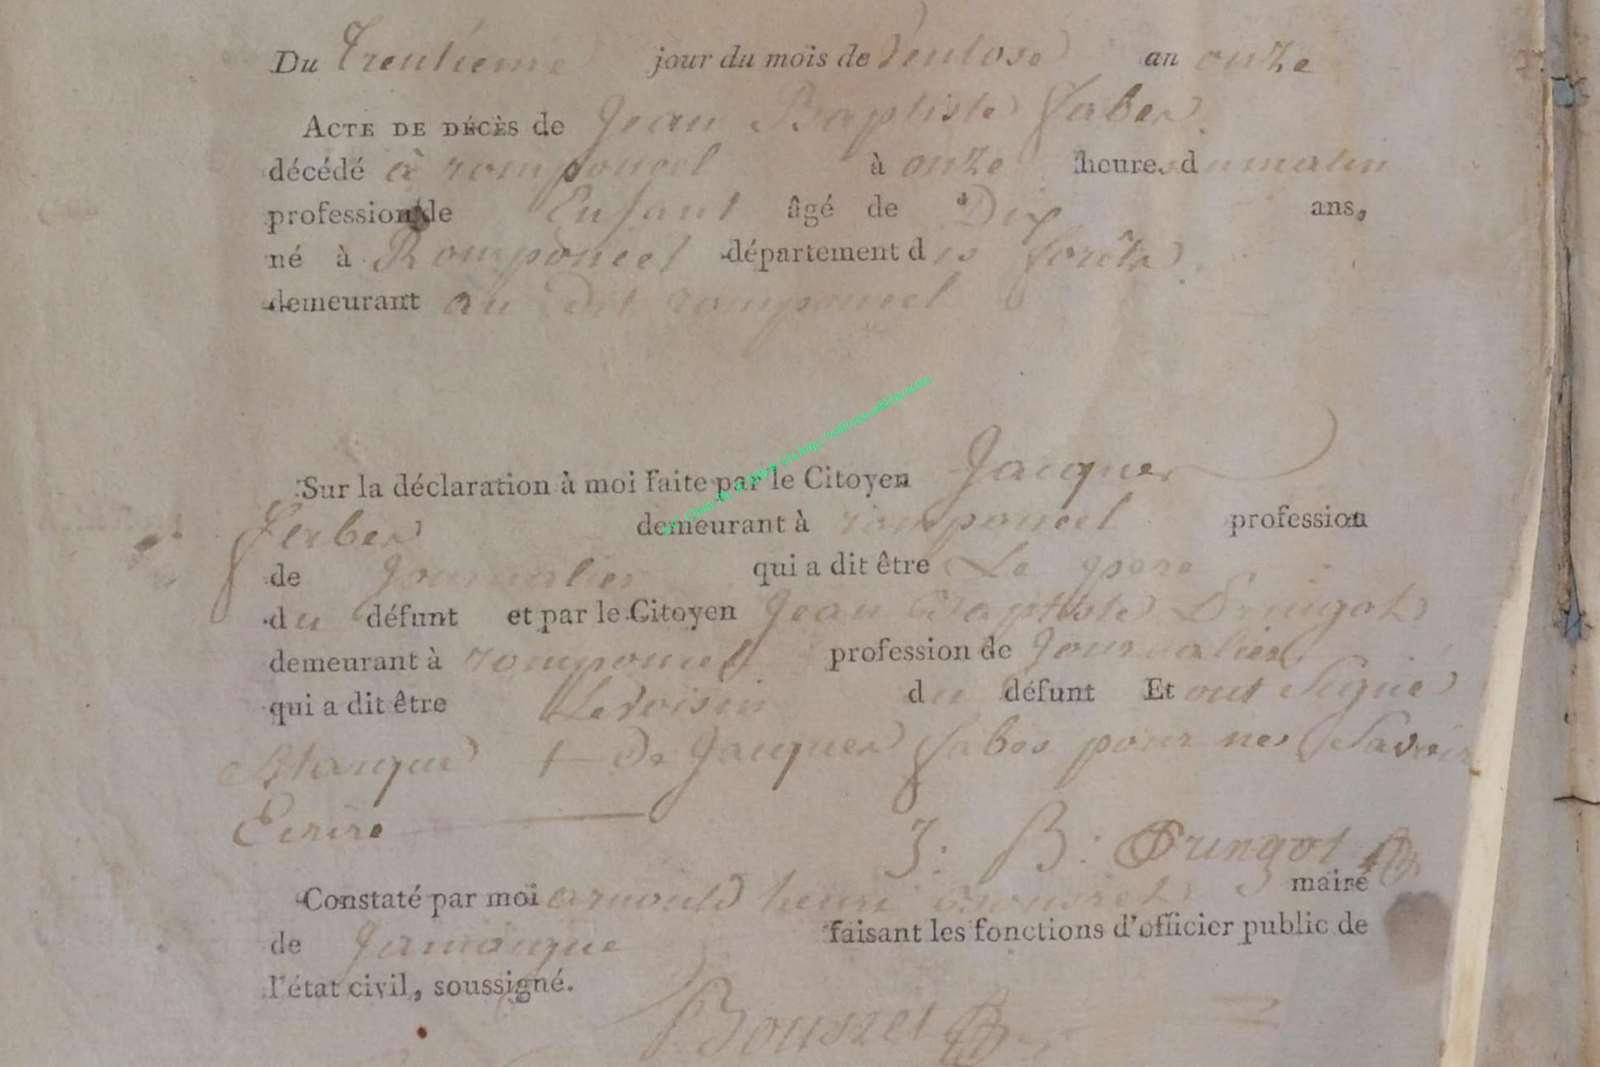 Du Trentieme jour du mois de Ventose an onze
ACTE DE DÉCÈS de Jean Baptiste faber
décédé à romponcel à onze heures du matin
profession de Enfant âgé de Dix ans,
né à Romponcel département des forêts
demeurant au dit romponcel
Sur la déclaration à moi faite par le Citoyen Jacques
faber demeurant à romponcel profession
de Journalier qui a dit être Le pere
du défunt et par le Citoyen Jean Baptiste
demeurant à romponcel profession de Journalier
qui a dit être Le voisin du défunt Et ont Signé
Marque + de Jacques fabes pour nes Savoir
Ecrire
J: B:
Constaté par moi arnould henri maire
de Jamoigne faisant les fonctions d'officier public de
l'état civil, soussigné.